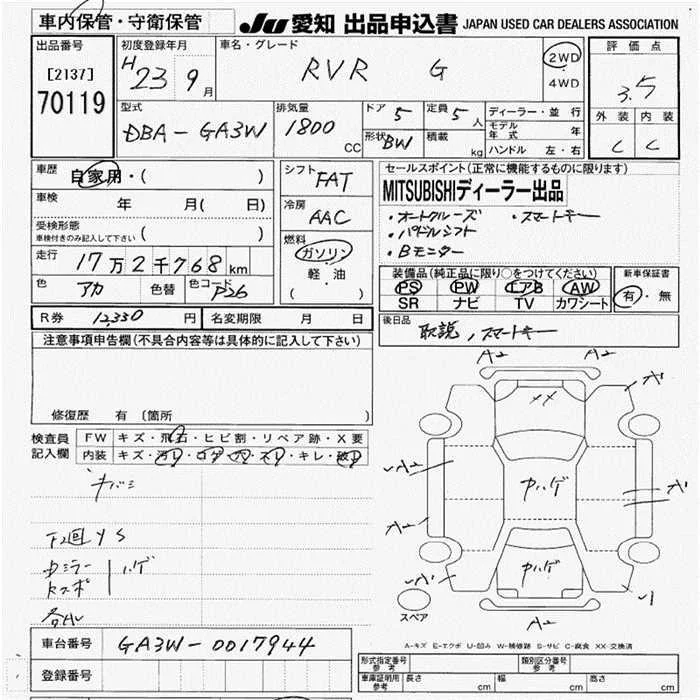 車内保管・守衛保管
JU 愛知 出品申込書 JAPAN USED CAR DEALERS ASSOCIATION
出品番号
[2137]
70119
初度登録年月
H 23 9 月
車名・グレード
RVR G
2WD
4WD
評価点
3.5
外装 内装
C C
型式
DBA-GA3W
排気量
1800 CC
ドア 5
定員 5 人
形状 BW
積載 kg
ディーラー・並行
モデル年式 年
ハンドル 左・右
車歴
自家用・( )
車検 年 月( 日)
受検形態
車検付きのみ記入して下さい ( )
走行 17万2千768km
色 アカ 色替 色コード P26
シフト FAT
冷房 AAC
燃料
ガソリン
軽・油
( )
セールスポイント(正常に機能するものに限ります)
MITSUBISHIディーラー出品
・オートクルーズ ・スマートキー
・パドルシフト
・Bモニター
装備品(純正品に限り○をつけてください)
PS PW エアB AW
SR ナビ TV カワシート
新車保証書
有・無
R券 12,330 円 名変期限 月 日
後日品
取説, スマートキー
注意事項申告欄(不具合内容等は具体的に記入して下さい)
修復歴 有 〔箇所 〕
検査員記入欄
FW キズ・飛石・ヒビ割・リペア跡・X要
内装 キズ・汚れ・コゲ・穴・スレ・キレ・破れ
キバミ
下回りS
ドミラー ハゲ
ドスポ
各AU
A2 A2
ガ
XX
A2
中ハゲ
ガ
A2
中ハゲ
ガ
A2
スペア
A-キズ E-エクボ U-凹み W-補修跡 S-サビ C-腐食 XX-交換済
車台番号 GA3W-0017944
登録番号
形式指定番号 参考
類別区分番号 参考
車庫証明用 参考 長さ cm 幅 cm 高さ cm